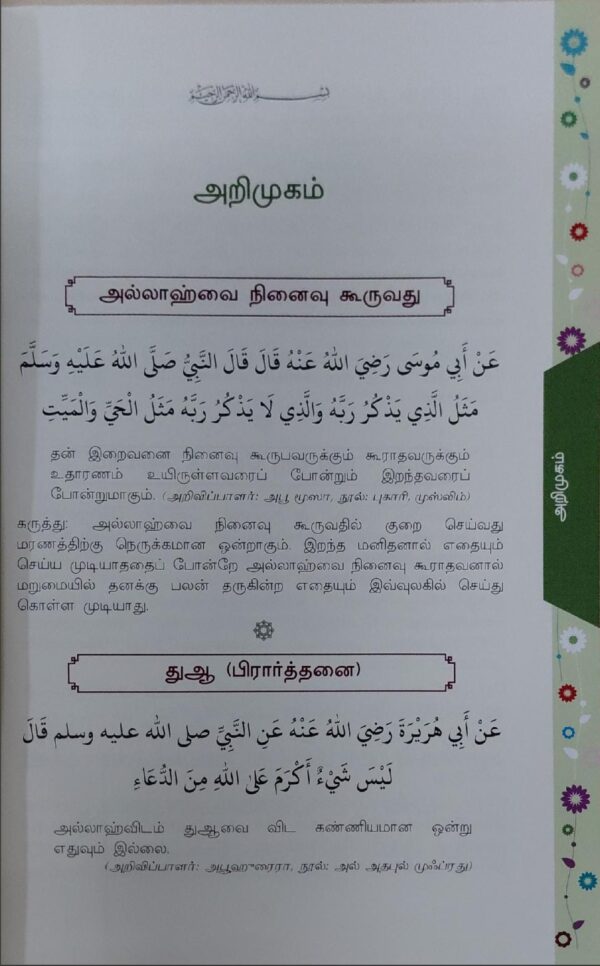 بسم الله الرحمن الرحيم
அறிமுகம்
அல்லாஹ்வை நினைவு கூருவது
عَنْ أَبِي مُوسَى رَضِيَ اللهُ عَنْهُ قَالَ قَالَ النَّبِيُّ صَلَّى اللهُ عَلَيْهِ وَسَلَّمَ
مَثَلُ الَّذِي يَذْكُرُ رَبَّهُ وَالَّذِي لَا يَذْكُرُ رَبَّهُ مَثَلُ الْحَيِّ وَالْمَيِّتِ
தன் இறைவனை நினைவு கூருபவருக்கும் கூராதவருக்கும்
உதாரணம் உயிருள்ளவரைப் போன்றும் இறந்தவரைப்
போன்றுமாகும். (அறிவிப்பாளர்: அபூ மூஸா, நூல்: புகாரி, முஸ்லிம்)
கருத்து: அல்லாஹ்வை நினைவு கூருவதில் குறை செய்வது
மரணத்திற்கு நெருக்கமான ஒன்றாகும். இறந்த மனிதனால் எதையும்
செய்ய முடியாததைப் போன்றே அல்லாஹ்வை நினைவு கூராதவனால்
மறுமையில் தனக்கு பலன் தருகின்ற எதையும் இவ்வுலகில் செய்து
கொள்ள முடியாது.
துஆ (பிரார்த்தனை)
عَنْ أَبِي هُرَيْرَةَ رَضِيَ اللهُ عَنْهُ عَنِ النَّبِيِّ صلى الله عليه وسلم قَالَ
لَيْسَ شَيْءٌ أَكْرَمَ عَلَى اللهِ مِنَ الدُّعَاءِ
அல்லாஹ்விடம் துஆவை விட கண்ணியமான ஒன்று
எதுவும் இல்லை.
(அறிவிப்பாளர்: அபூஹுரைரா, நூல்: அல் அதபுல் முஃப்ரது)
அறிமுகம்